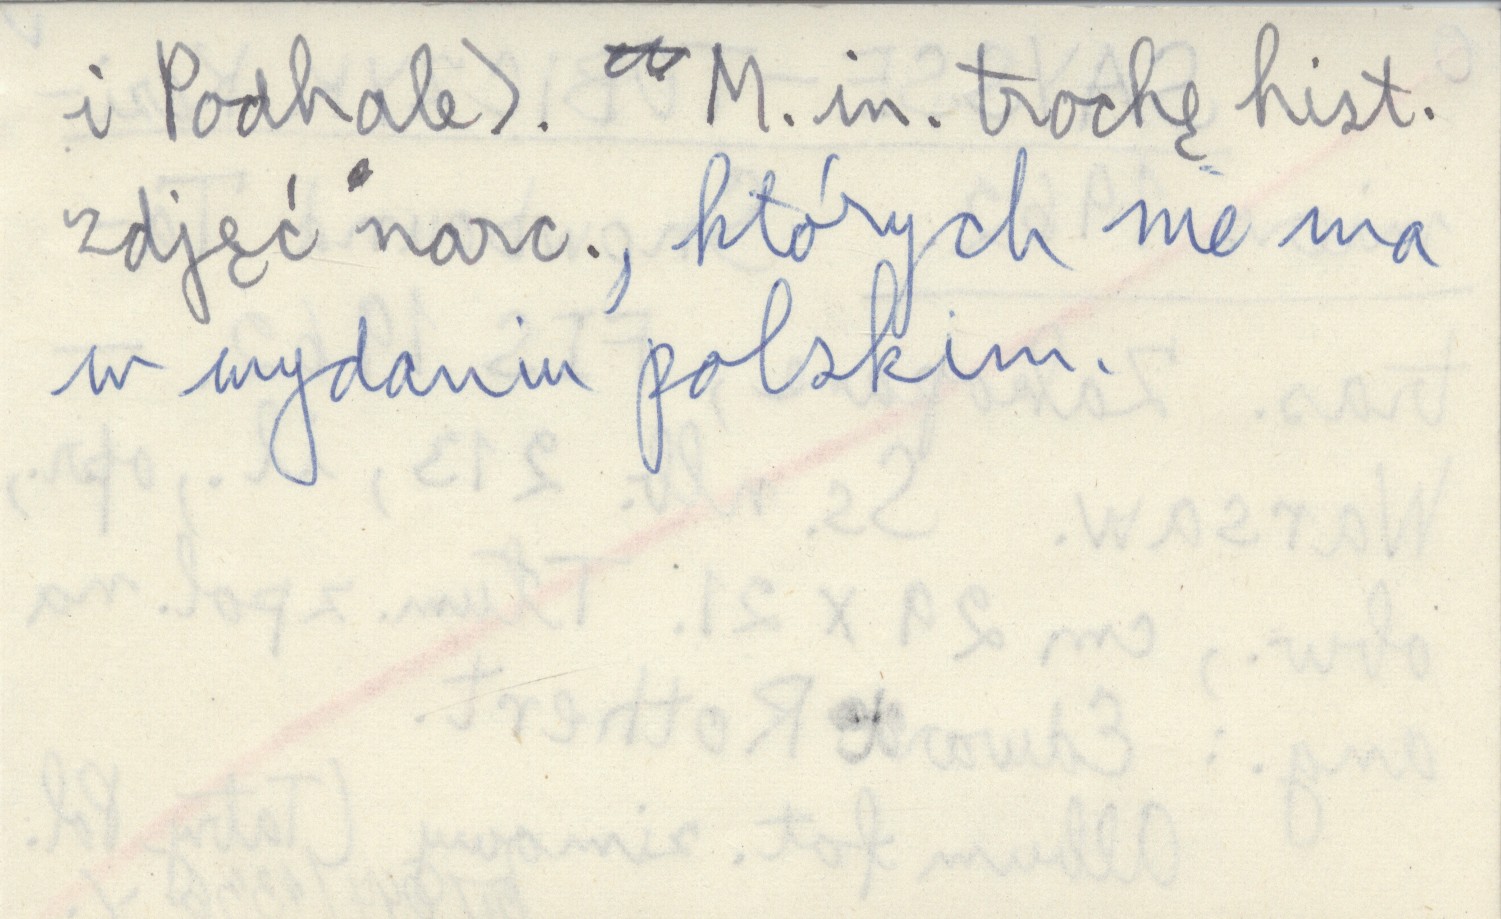 i Podhale). M. in. trochę hist.
zdjęć narc., których nie ma
w wydaniu polskim.